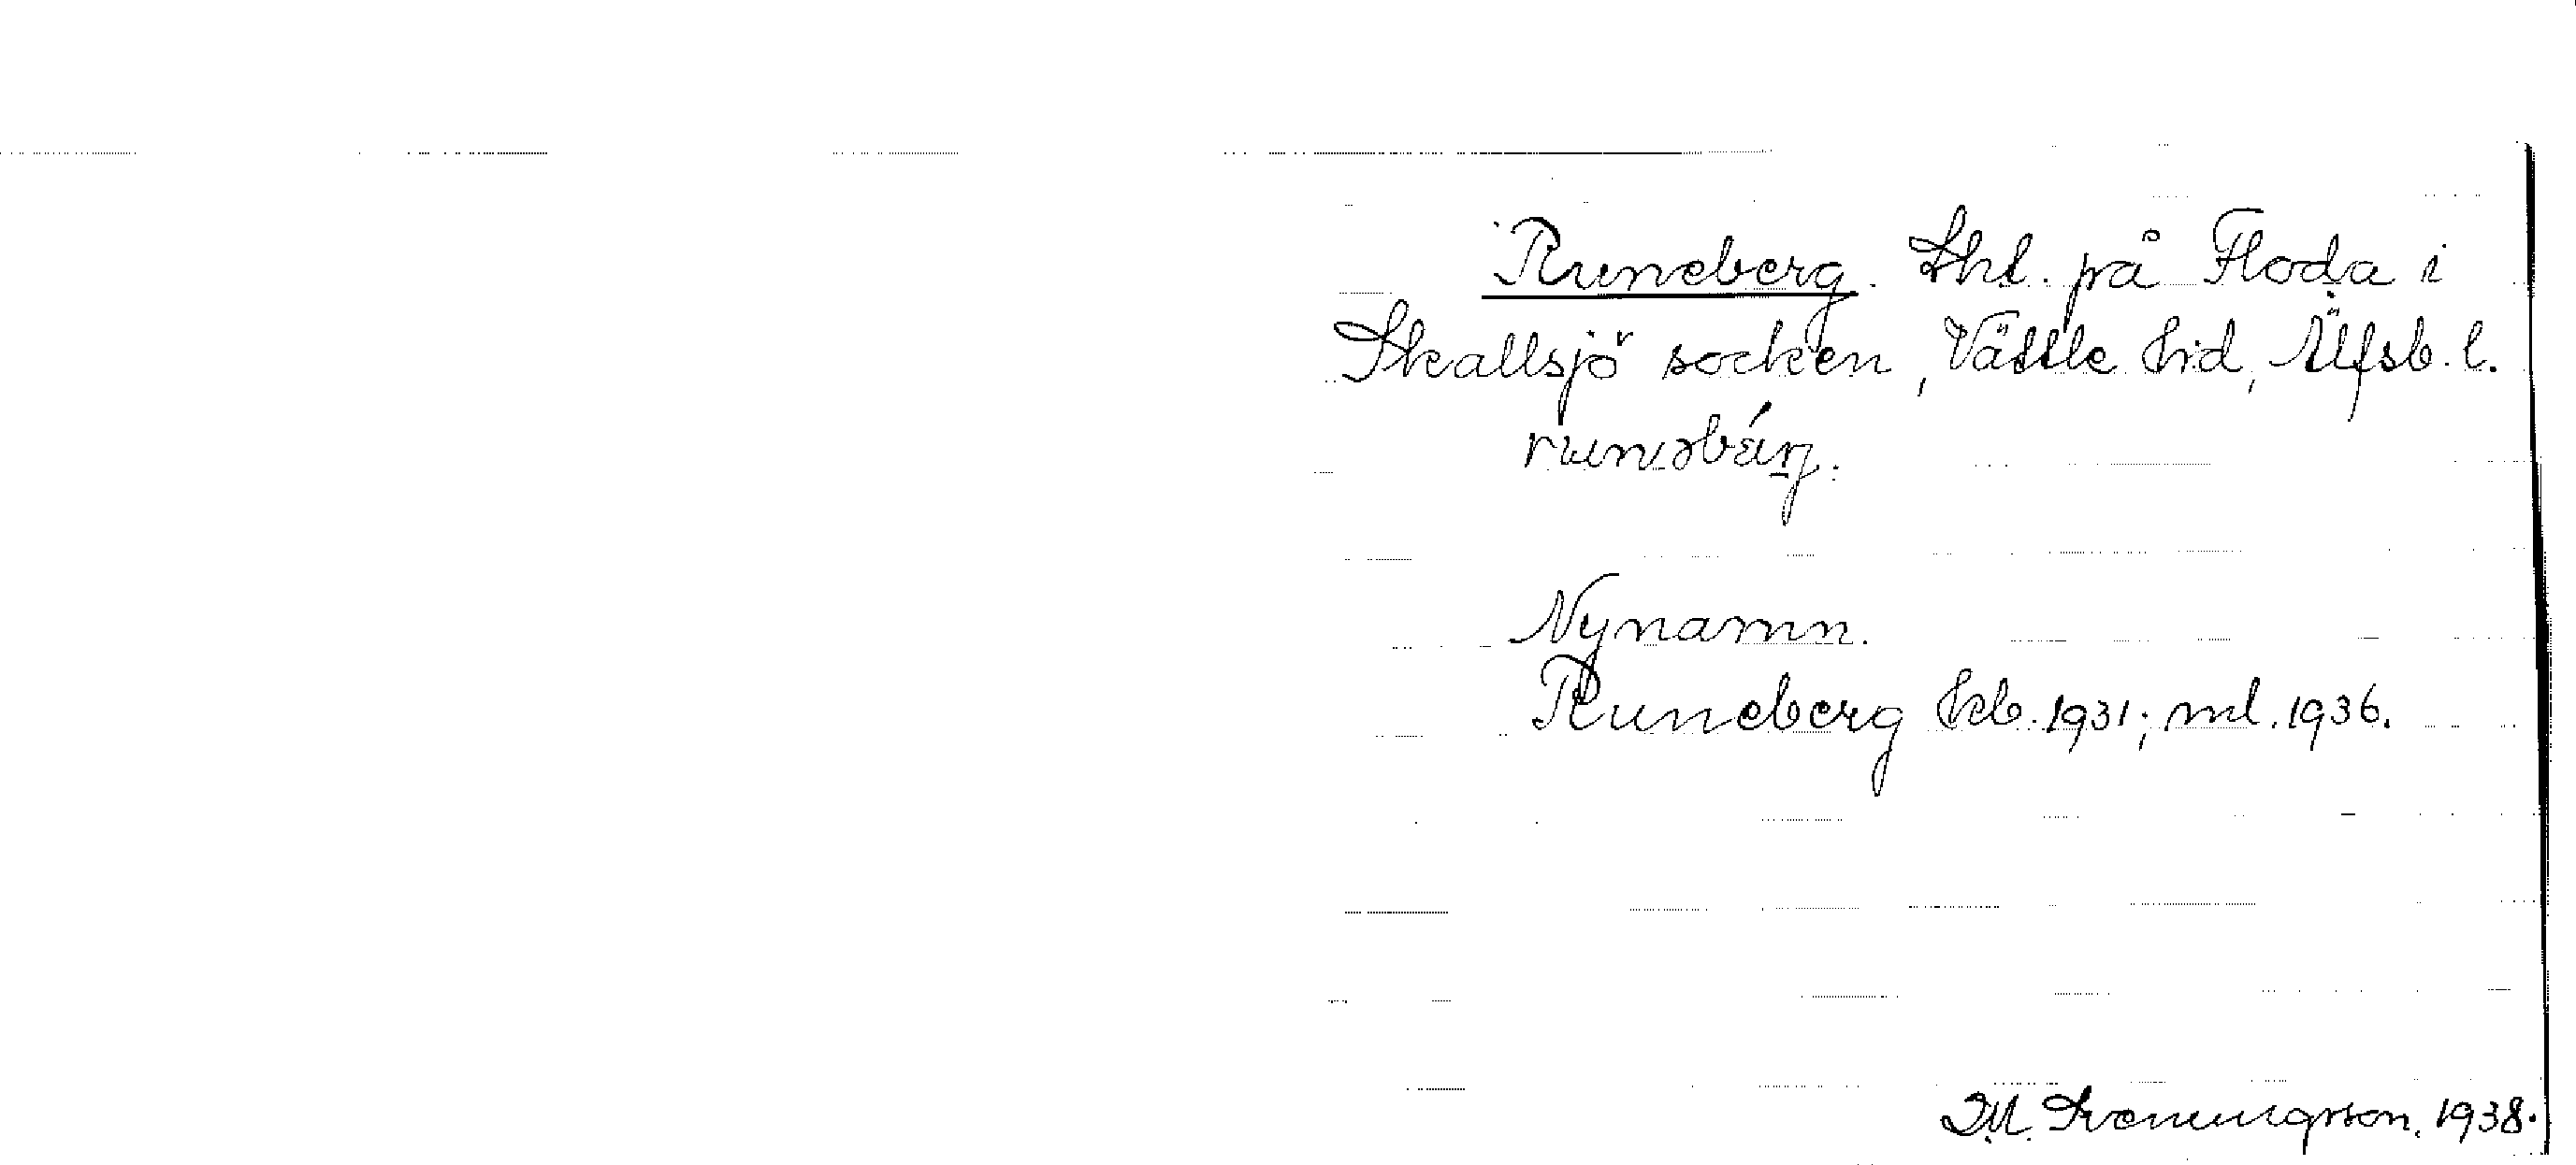 Runeberg. Lht. på Floda i
Skallsjö socken, Vättle hd, Älfsb. l.
runəbǽrj.
Nynamn.
Runeberg kb. 1931; ml. 1936.
D.M. Svenningsson. 1938.